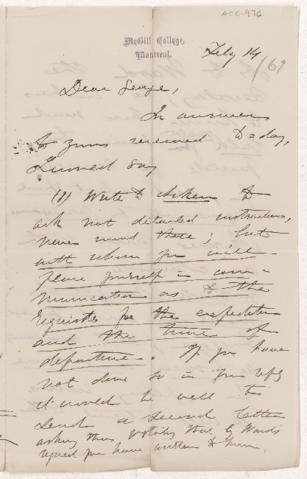 ACC-976
McGill College,
Montreal.
July 14/69
Dear George,
In answer
to yours received to-day,
I would say
(1) Write to Aitken to
ask not detailed instructions,
never mind these; but
with whom you will
place yourself in com-
munication as to the
requisites for the expedition
and the time of
departure. If you have
not done so in your reply
it would be well to
send a second letter
asking this stating that
you have written to him.